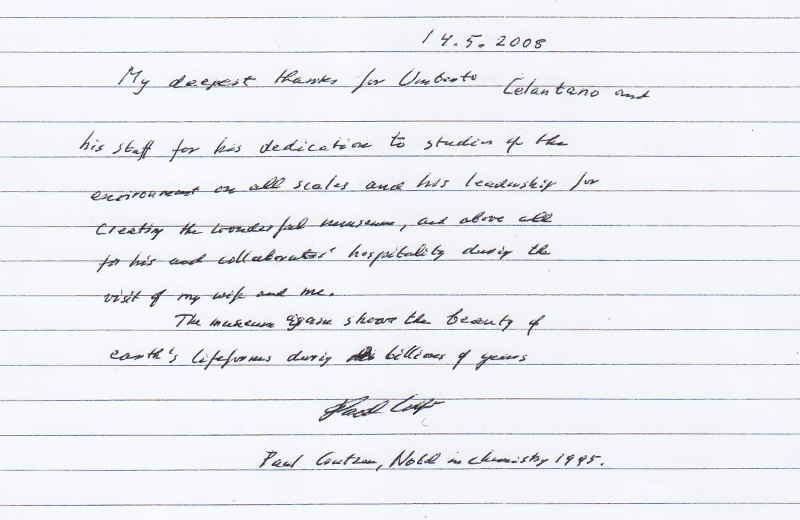 14.5.2008
My deepest thanks for Umberto Celantano and
his staff for his dedication to studies of the
environment on all scales and his leadership for
creating the wonderful museum, and above all
for his and collaborators' hospitality during the
visit of my wife and me.
The museum again shows the beauty of
earth's lifeforms during billions of years
Paul Crutzen, Nobel in chemistry 1995.